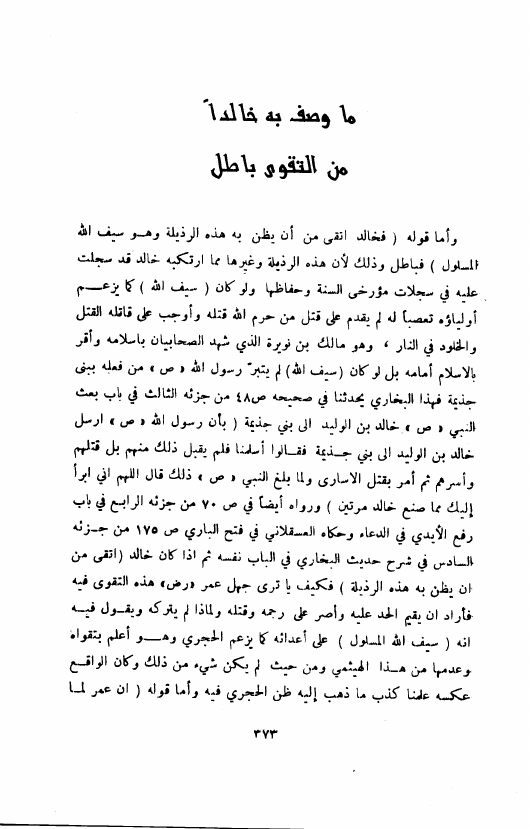 ما وصف به خالداً
من التقوى باطل
وأما قوله ( فخالد اتقى من أن يظن به هذه الرذيلة وهــو سيف الله
المسلول ) فباطل وذلك لأن هذه الرذيلة وغيرها مما ارتكبه خالد قد سجلت
عليه في سجلات مؤرخى السنة وحفاظها ولو كان ( سيف الله ) كما يزعــم
أولياؤه تعصباً له لم يقدم على قتل من حرم الله قتله وأوجب على قاتله القتل
والخلود في النار ، وهو مالك بن نويرة الذي شهد الصحابيان باسلامه وأقر
بالاسلام أمامه بل لو كان (سيف الله) لم يتبرّ رسول الله «ص» من فعله ببنى
جذيمة فهذا البخاري يحدثنا في صحيحه ص٤٨ من جزئه الثالث في باب بعث
النبي «ص» خالد بن الوليد الى بني جذيمة ( بأن رسول الله «ص» ارسل
خالد بن الوليد الى بني جــذيمة فقــالوا أسلمنا فلم يقبل ذلك منهم بل قتلهم
وأسرهم ثم أمر بقتل الاسارى ولما بلغ النبي «ص» ذلك قال اللهم اني ابرأ
إليك مما صنع خالد مرتين ) ورواه أيضاً في ص ٧٠ من جزئه الرابع في باب
رفع الأيدي في الدعاء وحكاه العسقلاني في فتح الباري ص ١٧٥ من جــزئه
السادس في شرح حديث البخاري في الباب نفسه ثم اذا كان خالد (اتقى من
ان يظن به هذه الرذيلة ) فكيف يا ترى جهل عمر «رض» هذه التقوى فيه
فأراد ان يقيم الحد عليه وأصر على رجمه وقتله ولماذا لم يتركه ويقــول فيــه
انه ( سيف الله المسلول ) على أعدائه كما يزعم الحجري وهــو أعلم بتقواه
وعدمها من هــذا الهيثمي ومن حيث لم يكن شيء من ذلك وكان الواقــع
عكسه علمنا كذب ما ذهب إليه ظن الحجري فيه وأما قوله ( ان عمر لمــا
٣٧٣